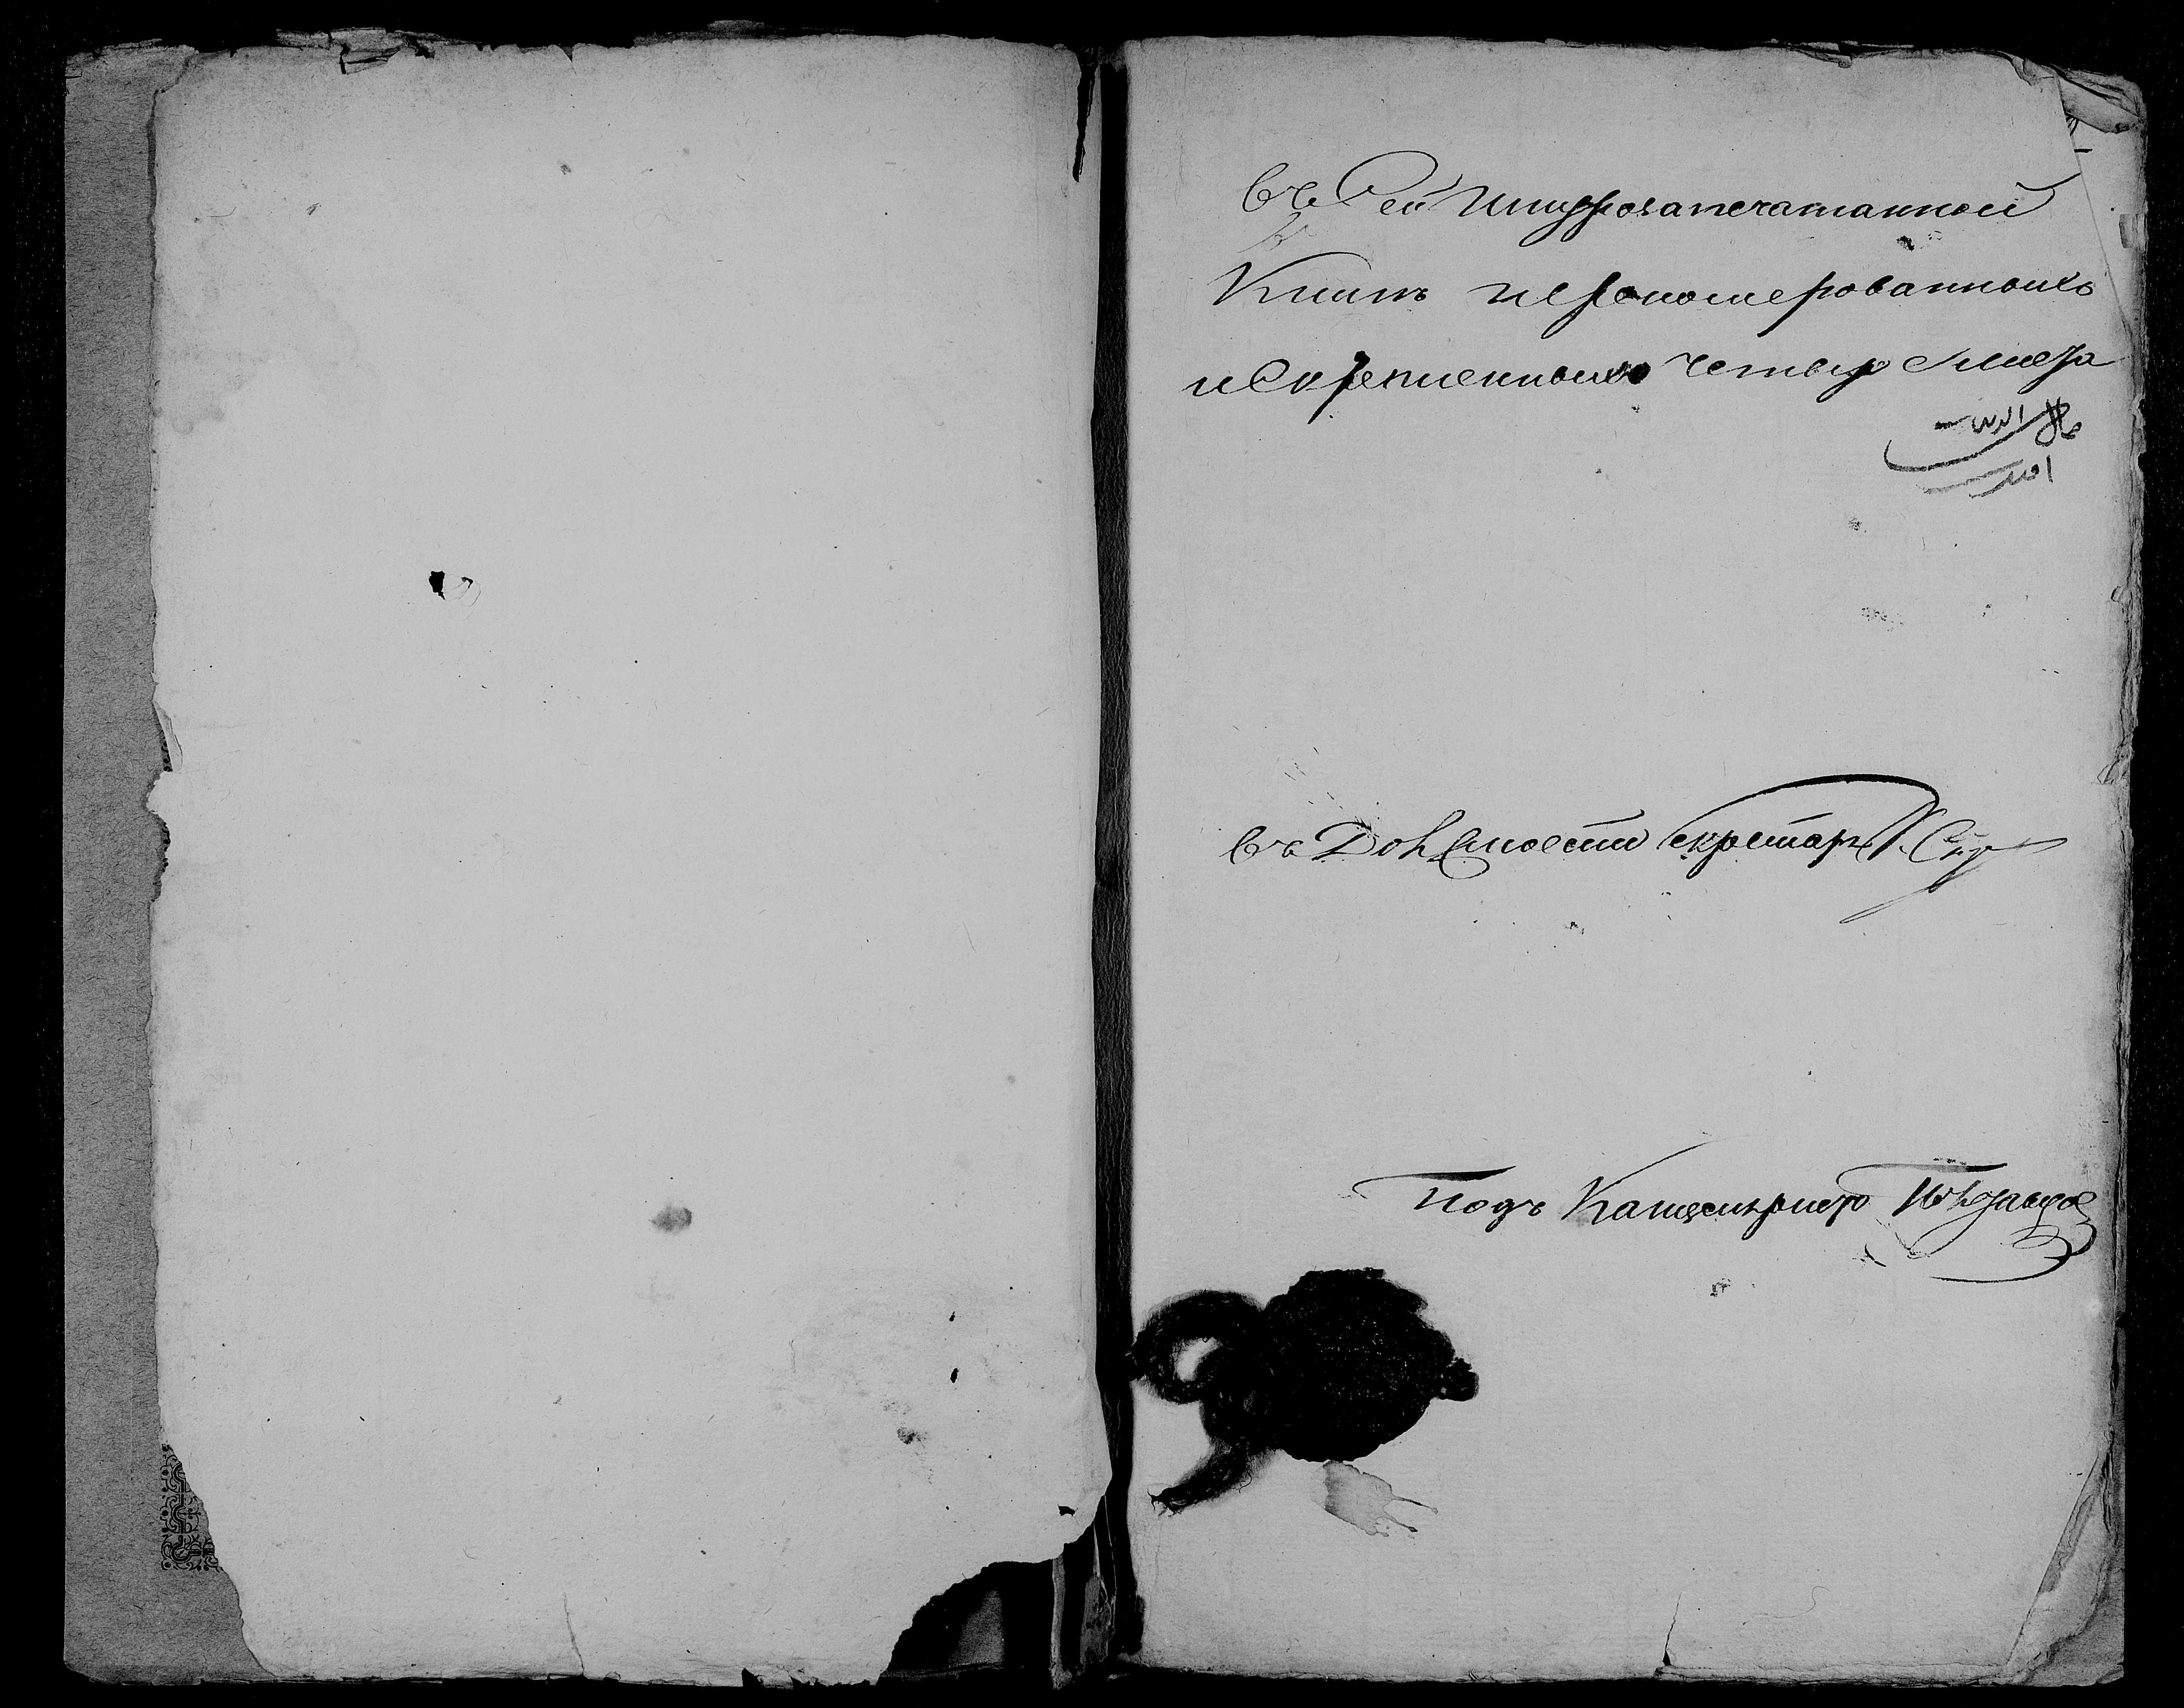 въ Сей шнурозапечатанной
Книгѣ перономерованныхъ
и Скрепленныхъ четыре листа
جمال الدين
въ Должности Секретаря
Подъ Канцеляристъ